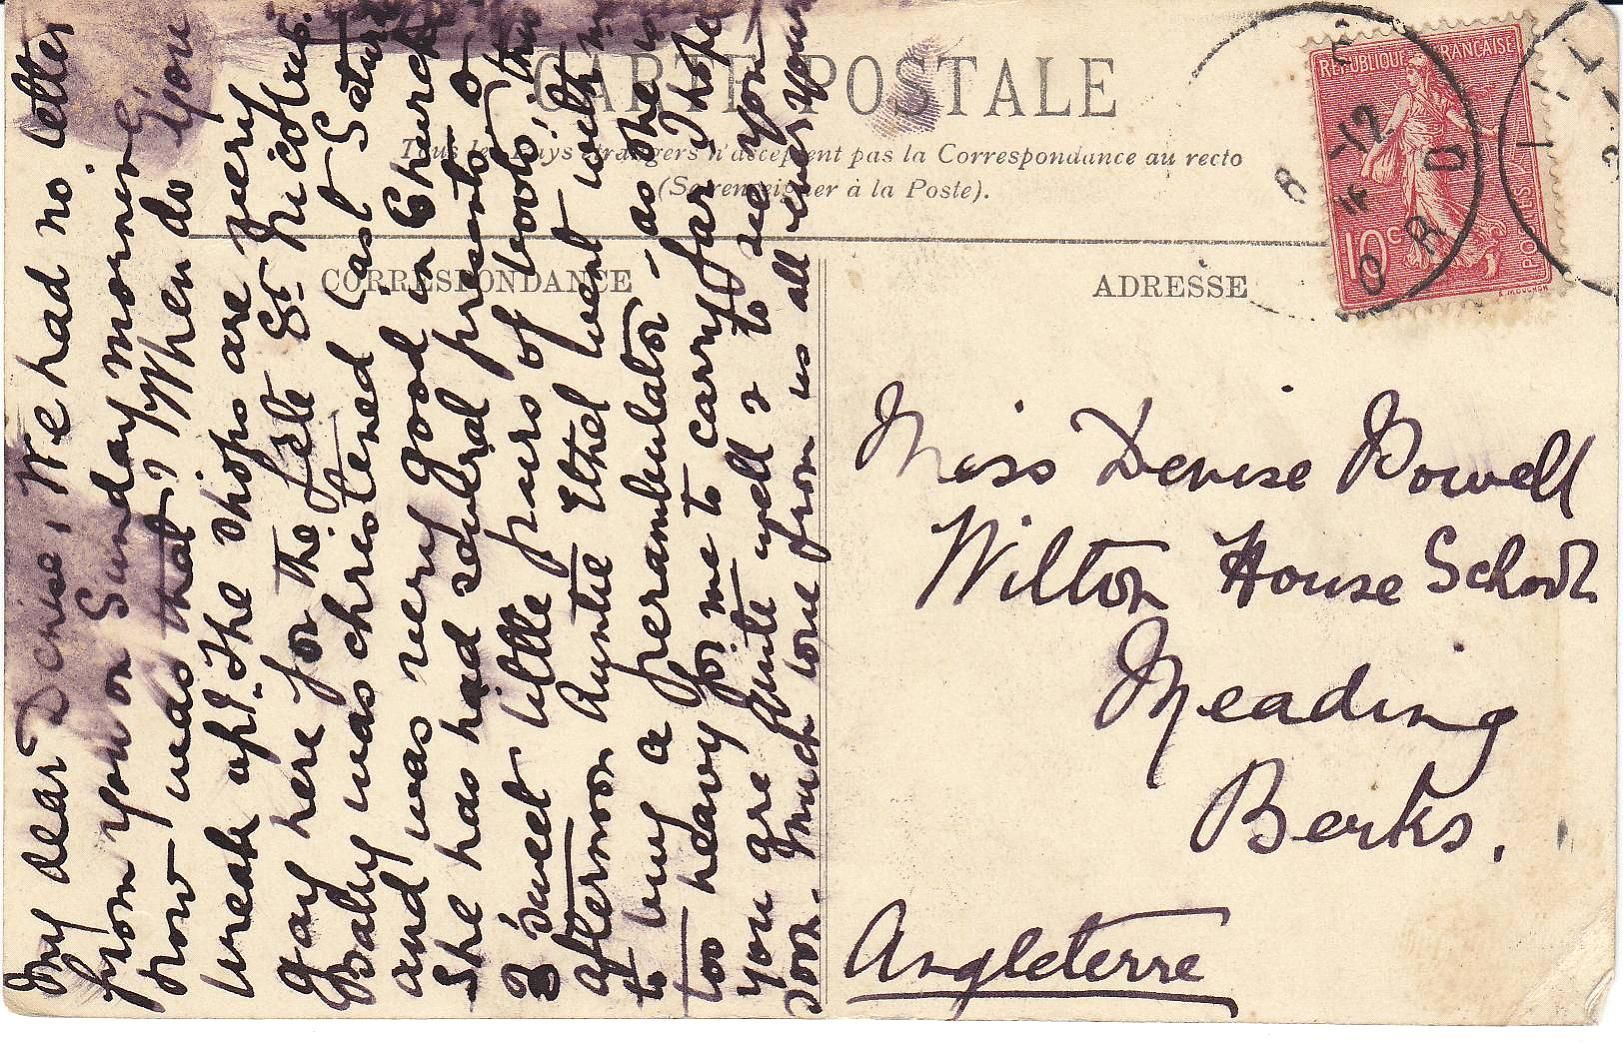 CARTE POSTALE
Tous les Pays étrangers n'acceptent pas la Correspondance au recto
(Se renseigner à la Poste).
CORRESPONDANCE
ADRESSE
REPUBLIQUE FRANÇAISE
10c
POSTES
8 -12
My dear Denise, We had no letter
from you on Sunday morning,
how was that? When do you
break up? The shops are very
gay here for the fête St. Nicolas.
Baby was christened last Satur
and was very good in Church
She has had several presents &
3 sweet little pairs of boots, this
afternoon Auntie Ethel went with
to buy a perambulator - as she is
too heavy for me to carry far. I hope
you are quite well & to see you
soon. Much love from us all ever your
Miss Denise Powell
Wilton House School
Reading
Berks.
Angleterre